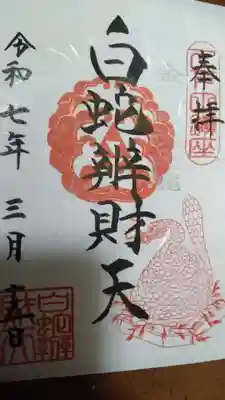 奉拝
白蛇辨財天
令和七年 三月 十五日